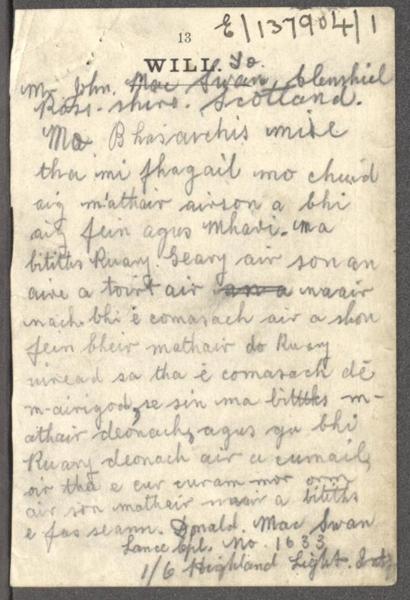 E/137904/1
13
WILL. To.
Mr John. Mac Swan, Glenshiel
Ross-shire. Scotland.
Ma Bhasaichis mise
tha mi fhagail mo chuid
aig m'athair airson a bhi
aig fein agus Mhari. ma
bitiths Ruary Geary air son an
aire a toirt air maair
mach bhi e comasach air a shon
fein bheir mathair do Ruary
uiread sa tha é comasach dé
m-airigod, se sin ma bitiths m-
athair deonach, agus gu bhi
Ruary deonach air a cumail,
air tha e cur curam mor orm
air son mathair maair a bitiths
e fas seann. Donald. Mac Swan
Lance Cpl. No. 1633
1/6 Highland Light.